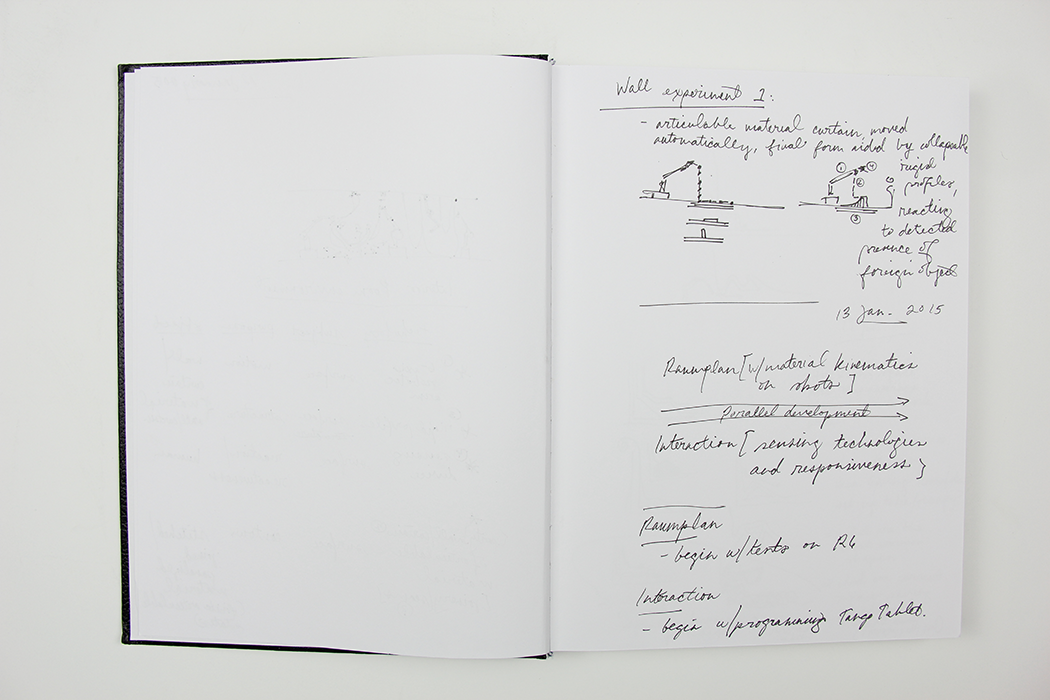 Wall experiment 1:
- articulable material curtain, moved
automatically, final form aided by collapsable
rigid
profiles,
reacting
to detected
presence of
foreign object
1
4
2
3
13 Jan. 2015
Raumplan [w/material kinematics
on shots]
Parallel development
Interaction [sensing technologies
and responsiveness]
Raumplan
- begin w/tests on R6
Interaction
- begin w/programming Tablet.